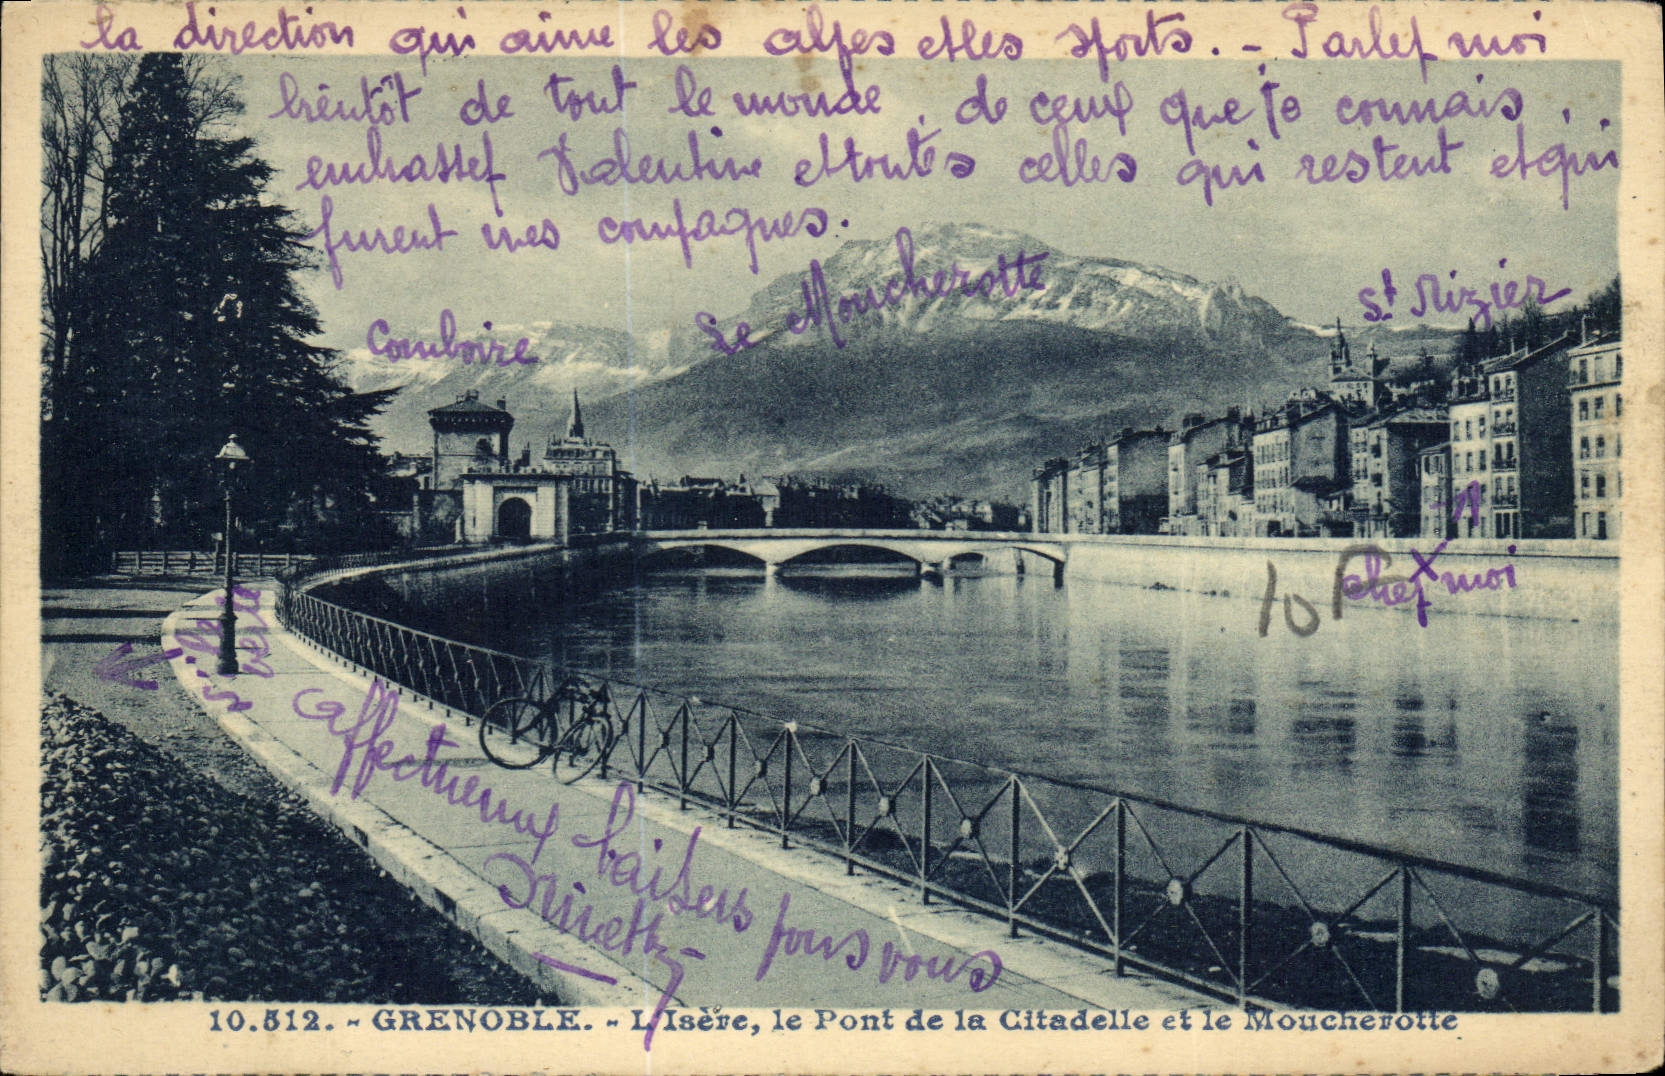 la direction qui aime les alpes et les sports. - Parlez moi
bientôt de tout le monde, de ceux que je connais,
embrassez Valentine et toutes celles qui restent et qui
furent mes compagnes.
St Nizier
Le Moucherotte
Comboire
chez moi
10 F
île verte
affectueux baisers pour vous
Ninette
10.512. - GRENOBLE. - L'Isère, le Pont de la Citadelle et le Moucherotte